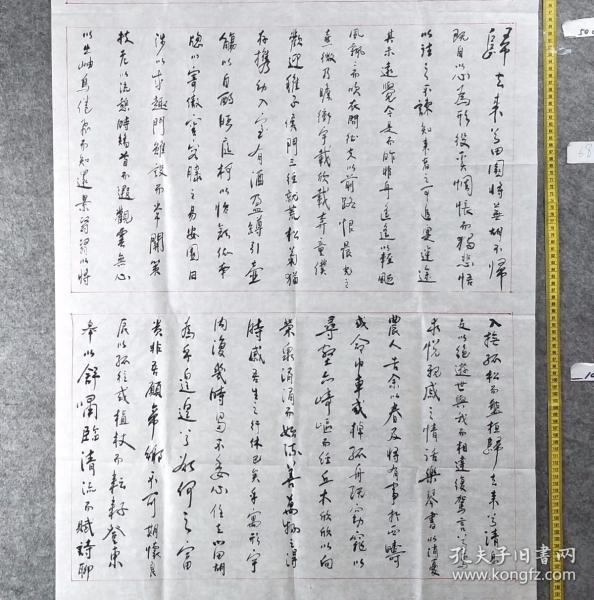 歸去来兮田園将蕪胡不歸
既自以心為形役奚惆悵而獨悲悟
以往之不諫知来者之可追實迷途
其未遠覺今是而昨非舟遥遥以輕颺
風飄飄而吹衣問征夫以前路恨晨光之
熹微乃瞻衡宇載欣載奔童僕
歡迎稚子候門三徑就荒松菊猶
存携幼入室有酒盈罇引壺
觴以自酌眄庭柯以怡顔倚南
窗以寄傲審容膝之易安園日
涉以成趣門雖設而常關策
扶老以流憩時矯首而遐觀雲無心
以出岫鳥倦飛而知還景翳翳以将
入撫孤松而盤桓歸去来兮請息
交以絶遊世與我而相違復駕言兮焉
求悅親戚之情話樂琴書以消憂
農人告余以春及将有事於西疇
或命巾車或棹孤舟既窈窕以
尋壑亦崎嶇而經丘木欣欣以向
榮泉涓涓而始流善萬物之得
時感吾生之行休已矣乎寓形宇
内復幾時曷不委心任去留胡
為乎遑遑兮欲何之富
貴非吾願帝鄉不可期懷良
辰以孤往或植杖而耘耔登東
皋以舒嘯臨清流而賦詩聊
孔夫子旧书网
www.kongfz.com